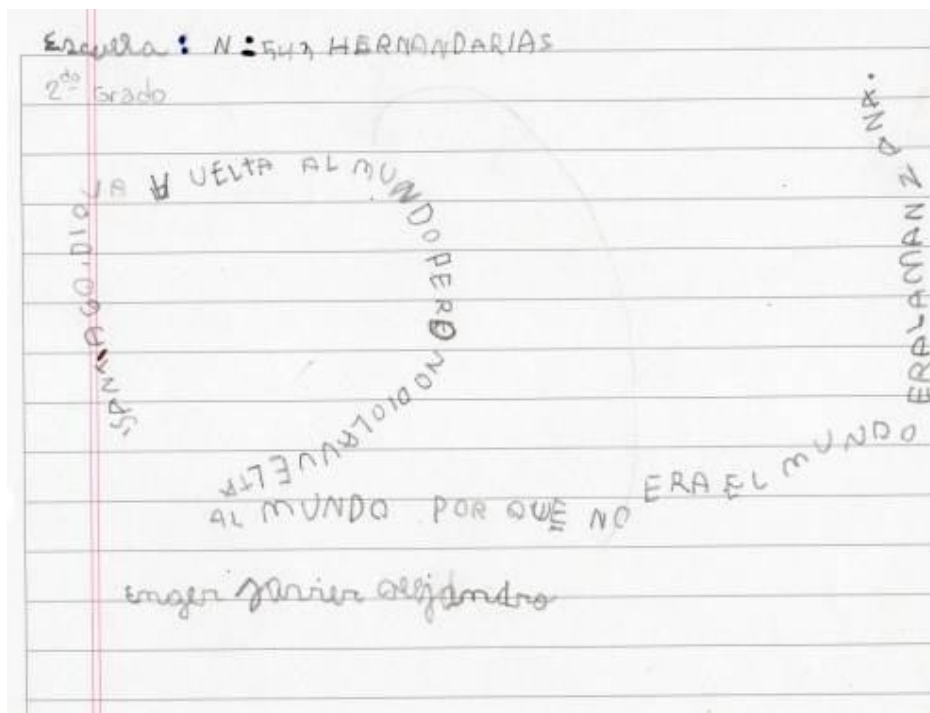 Escuela : N: 543 HERNANDARIAS
2do Grado
SANTIAGO. DIO LA VUELTA AL MUNDO PERO NO DIO LA VUELTA
AL MUNDO POR QUE NO ERA EL MUNDO ERALAMANZANA.
Enger Javier Alejandro